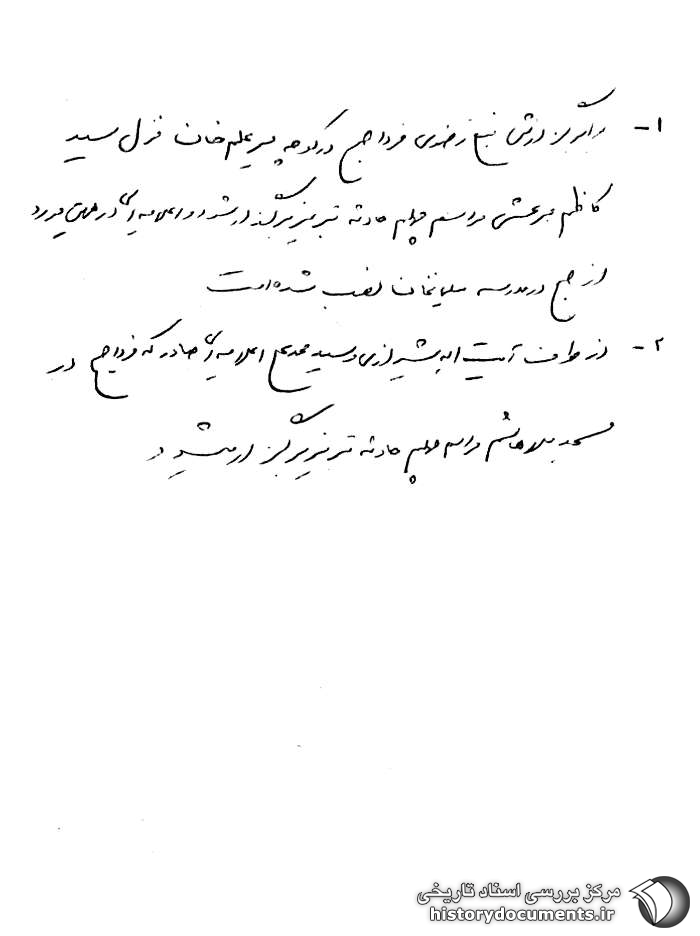 ۱- برابر گزارش منبع رضوی فردا صبح در کوچه میر علم خان منزل سید
کاظم مرعشی مراسم چهلم حادثه تبریز برگزار شده و اعلامیه‌ای در همین مورد
از صبح در مدرسه سلیمانخان نصب شده است
۲- از طرف آیت اله شیرازی و سید محمد علی اعلامیه‌ای صادر که فردا صبح در
مسجد ملا هاشم مراسم چهلم حادثه تبریز برگزار میشود
مرکز بررسی اسناد تاریخی
historydocuments.ir